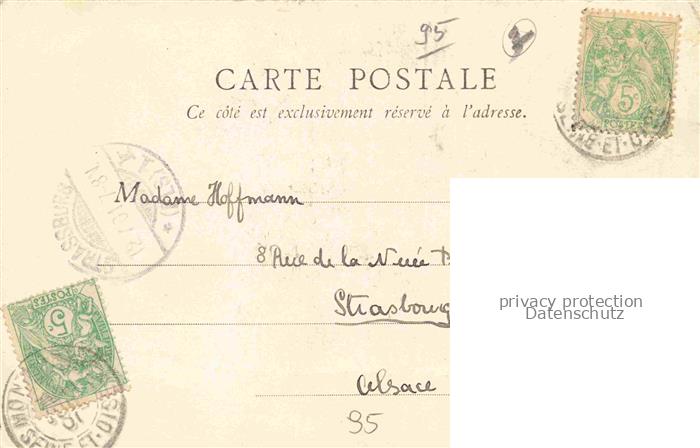 95
CARTE POSTALE
Ce côté est exclusivement réservé à l'adresse.
5c
POSTES
SEINE-ET-OISE
STRASSBURG
Madame Hoffmann
8 Rue de la Nuée
Strasbourg
Alsace
privacy protection
Datenschutz
POSTES
5c
SEINE-ET-OISE
95